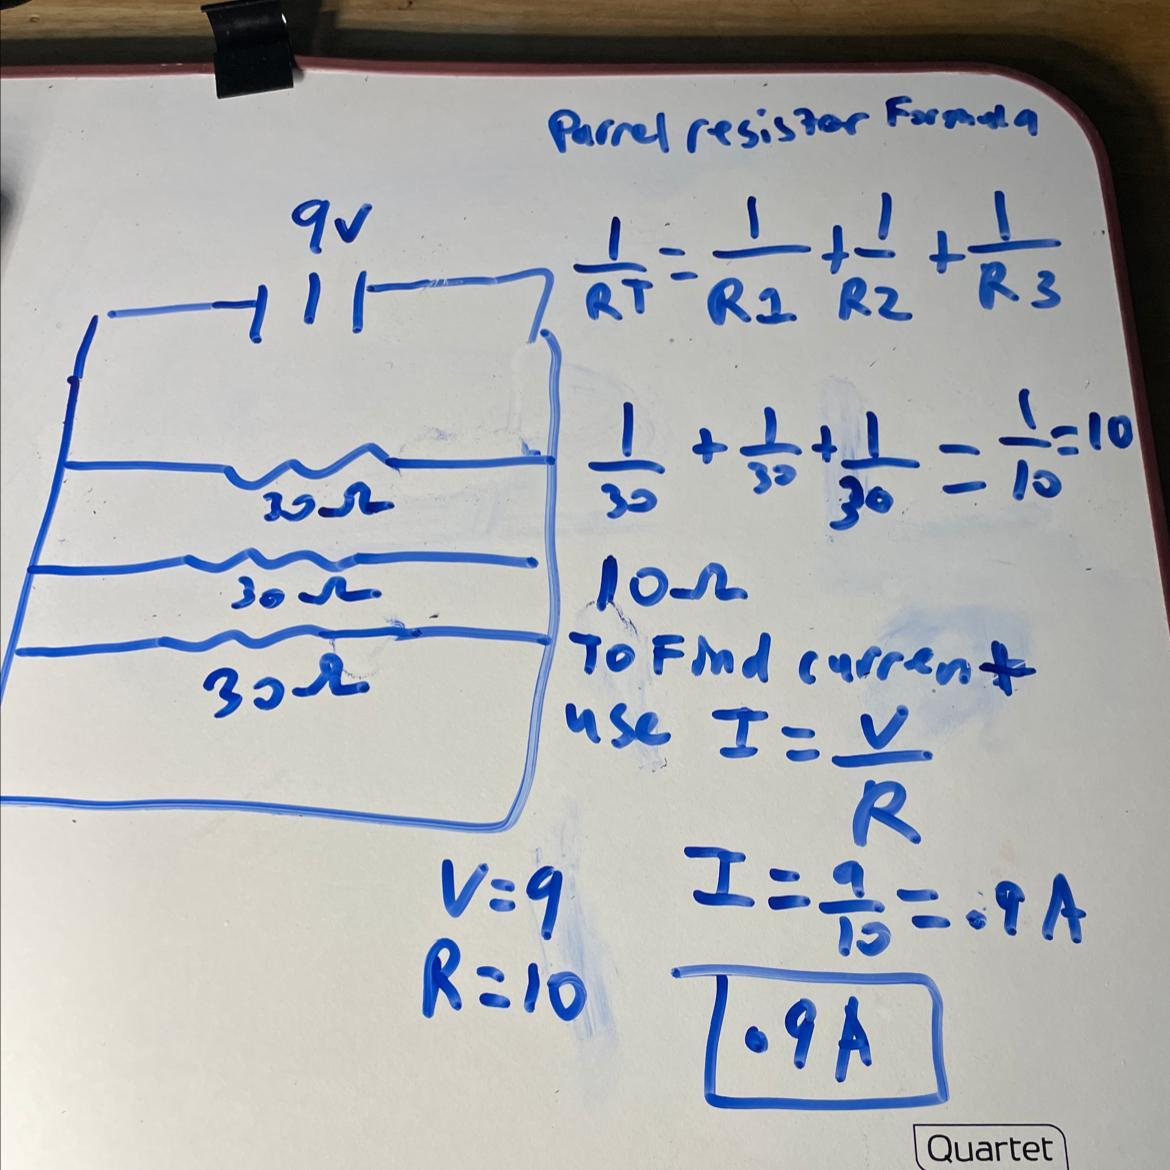 Parrel resistor Formula
9v
1/RT = 1/R1 + 1/R2 + 1/R3
1/30 + 1/30 + 1/30 = 1/10 = 10
30Ω
30Ω
30Ω
10Ω
To Find current
use I = V/R
V=9
R=10
I = 9/10 = .9A
.9A
Quartet